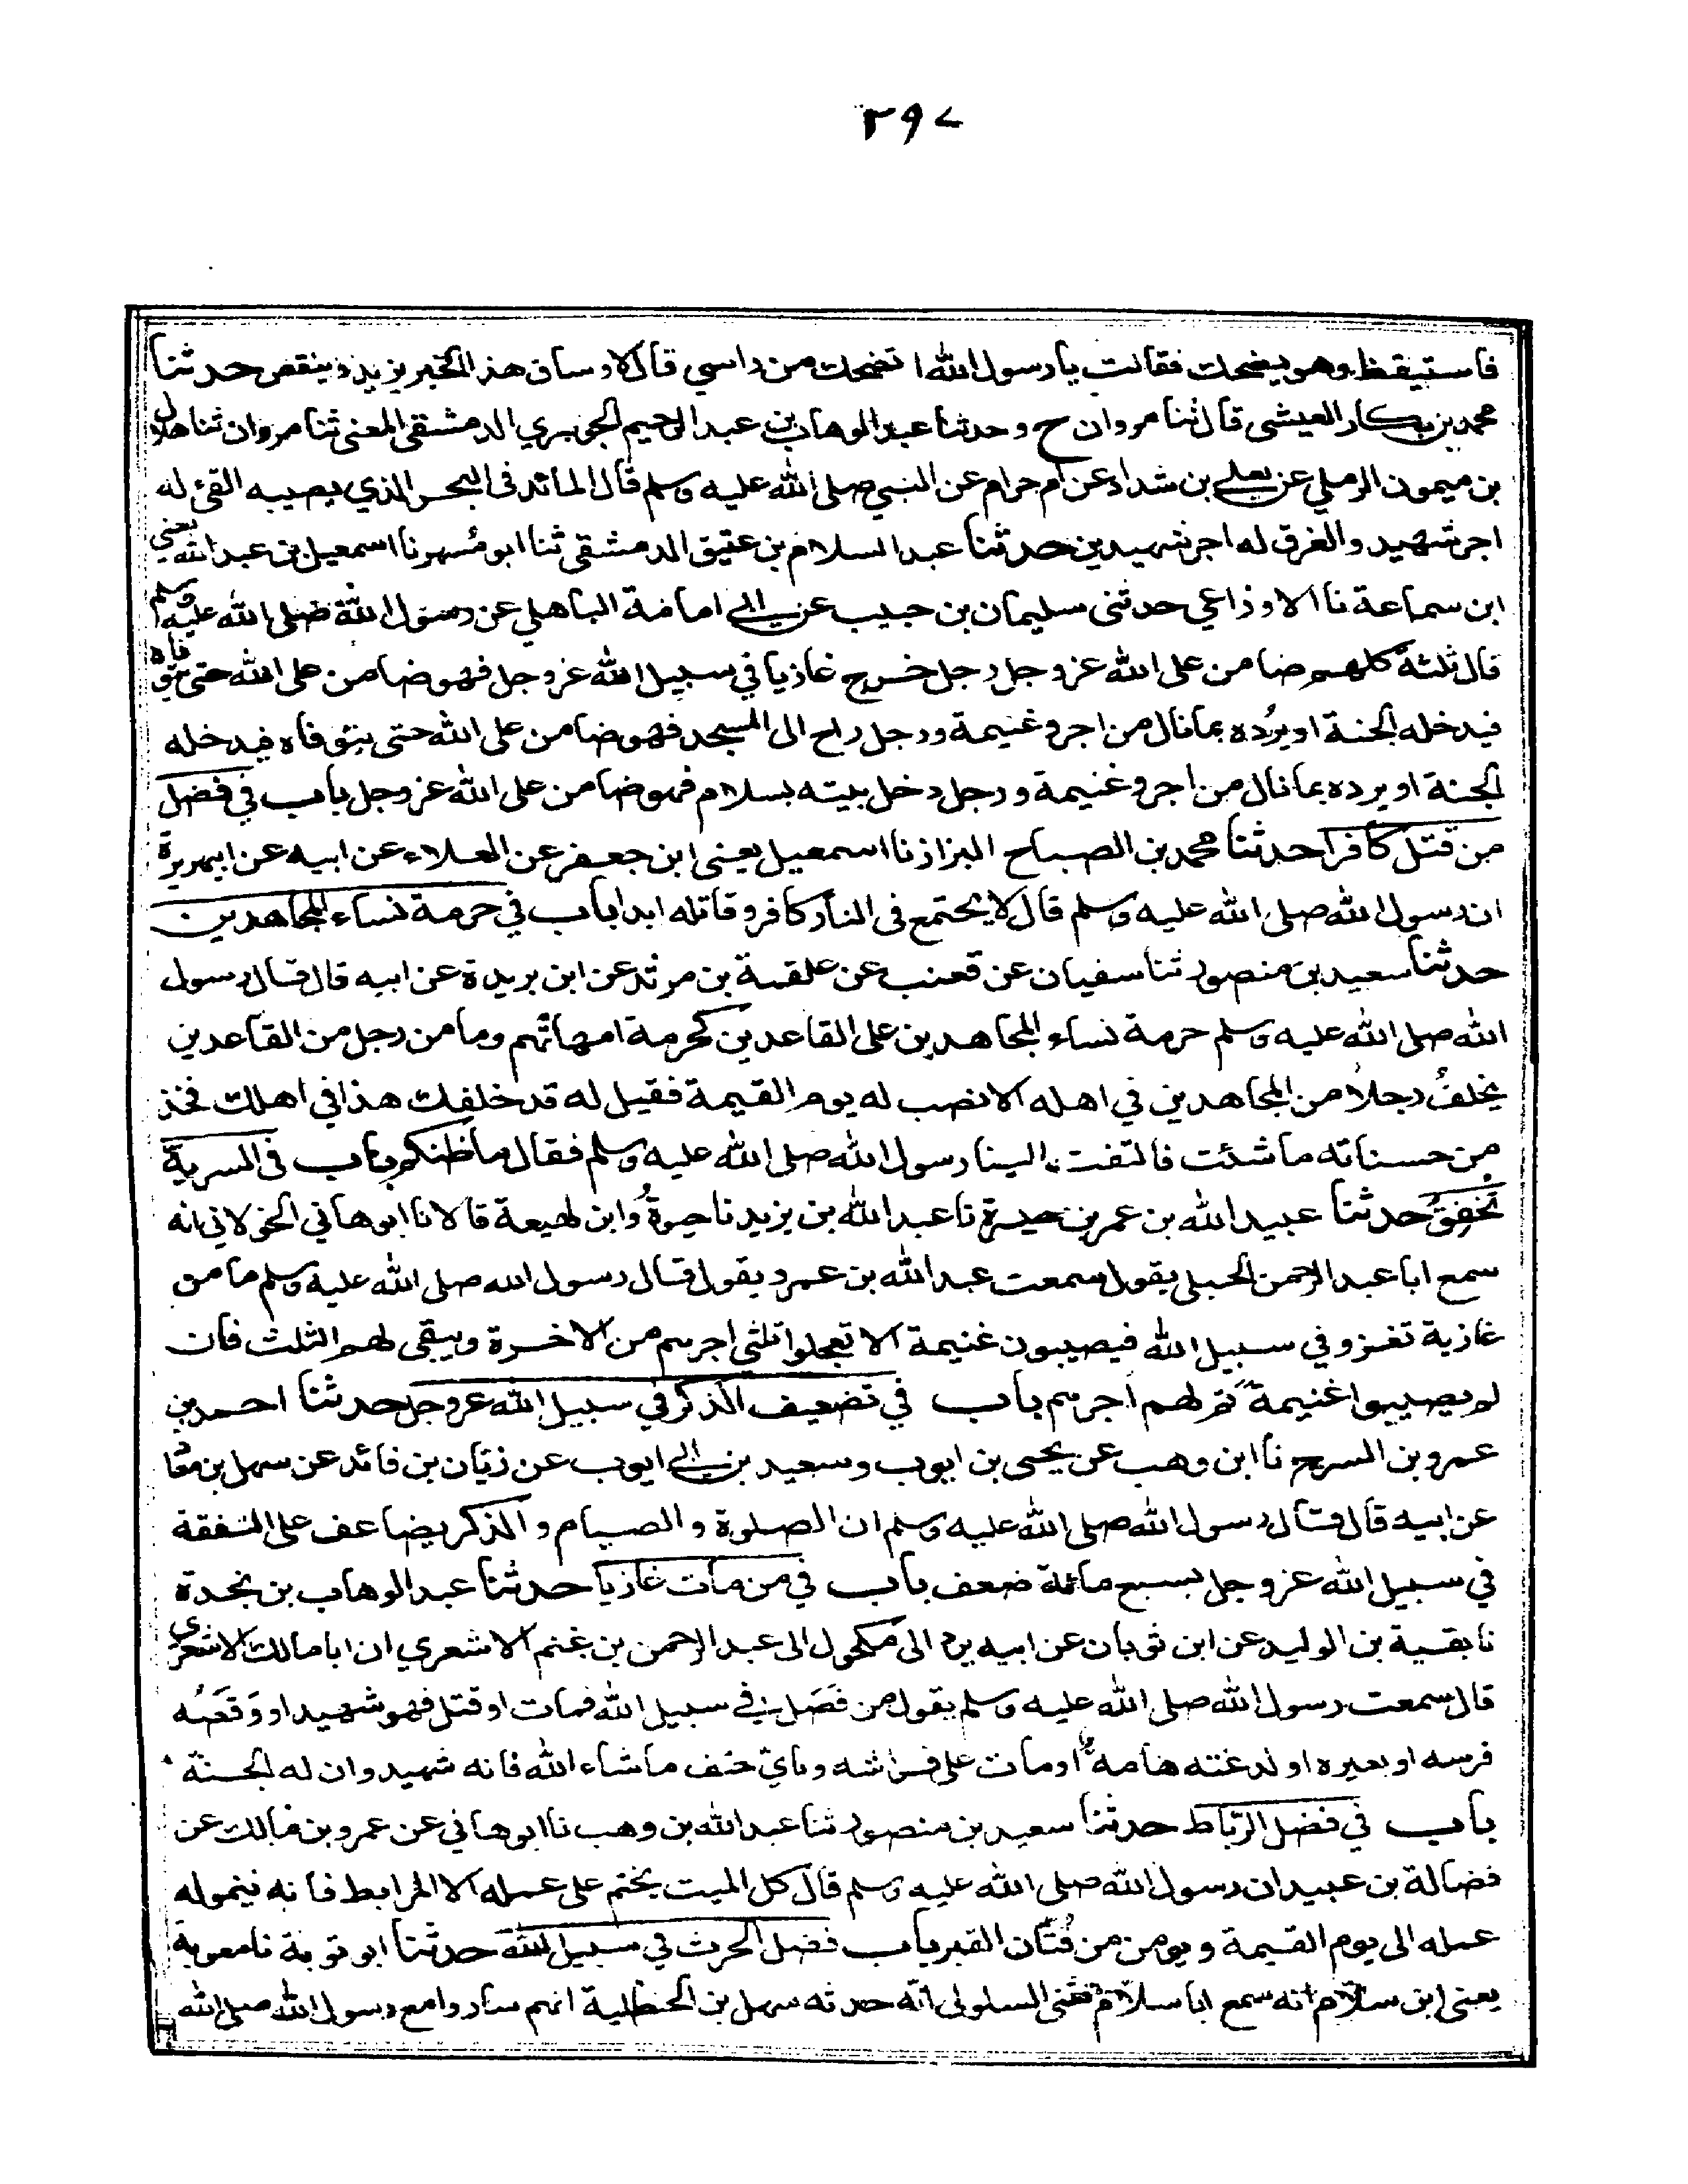 ٣٩٧
فاستيقظ وهو يضحك فقالت يا رسول الله اتضحك من راسي قال لا وساق هذا الخبر يزيد وينقص حدثنا
محمد بن بكار العيشى قال ثنا مروان ح وحدثنا عبد الوهاب بن عبد الرحيم الجوبري الدمشقى المعنى ثنا مروان ثنا هلال
بن ميمون الرملي عن يعلى بن شداد عن ام حرام عن النبي صلى الله عليه وسلم قال المائد فى البحر الذي يصيبه القئ له
اجر شهيد والغرق له اجر شهيدين حدثنا عبد السلام بن عتيق الدمشقى ثنا ابو مُسهر نا اسمعيل بن عبد الله يعني
ابن سماعة نا الاوزاعي حدثنى سليمان بن حبيب عن ابي امامة الباهلي عن رسول الله صلى الله عليه وسلم
قال ثلثة كلهم ضامن على الله عز وجل رجل خرج غازيا في سبيل الله عز وجل فهو ضامن على الله حتى يتوفاه
فيدخله الجنة او يرُده بما نال من اجر وغنيمة ورجل راح الى المسجد فهو ضامن على الله حتى يتوفاه فيدخله
الجنة او يرده بما نال من اجر وغنيمة ورجل دخل بيته بسلام فهو ضامن على الله عز وجل باب في فضل
من قتل كافرا حدثنا محمد بن الصباح البزاز نا اسمعيل يعنى ابن جعفر عن العلاء عن ابيه عن ابي هريرة
ان رسول الله صلى الله عليه وسلم قال لا يجتمع فى النار كافر وقاتله ابدا باب في حرمة نساء المجاهدين
حدثنا سعيد بن منصور ثنا سفيان عن قعنب عن علقمة بن مرثد عن ابن بريدة عن ابيه قال قال رسول
الله صلى الله عليه وسلم حرمة نساء المجاهدين على القاعدين كحرمة امهاتهم وما من رجل من القاعدين
يخلفُ رجلا من المجاهدين في اهله الا نصب له يوم القيمة فقيل له قد خلفك هذا في اهلك فخذ
من حسناته ما شئت فالتفت الينا رسول الله صلى الله عليه وسلم فقال ما ظنكم باب فى السرية
تخفق حدثنا عبيد الله بن عمر بن ميسرة نا عبد الله بن يزيد نا حيوةُ وابن لهيعة قالا نا ابوهاني الخولاني انه
سمع ابا عبد الرحمن الحبلى يقول سمعت عبد الله بن عمرو يقول قال رسول الله صلى الله عليه وسلم ما من
غازية تغزو في سبيل الله فيصيبون غنيمة الا تعجلوا ثلثى اجرهم من الاخرة ويبقى لهم الثلث فان
لم يصيبوا غنيمة تم لهم اجرهم باب في تضعيف الذكر في سبيل الله عز وجل حدثنا احمد بن
عمرو بن السرح نا ابن وهب عن يحيى بن ايوب وسعيد بن ابي ايوب عن زبّان بن فائد عن سهل بن معاذ
عن ابيه قال قال رسول الله صلى الله عليه وسلم ان الصلوة والصيام والذكر يضاعف على النفقة
في سبيل الله عز وجل بسبع مائة ضعف باب في من مات غازيا حدثنا عبد الوهاب بن نجدة
نا بقية بن الوليد عن ابن ثوبان عن ابيه يرد الى مكحول الى عبد الرحمن بن غنم الاشعري ان ابا مالك الاشعري
قال سمعت رسول الله صلى الله عليه وسلم يقول من فَصَل في سبيل الله فمات او قتل فهو شهيد او وَقَصَه
فرسه او بعيره او لدغته هامةٌ او مات على فراشه وباي حتف ما شاء الله فانه شهيد وان له الجنة
باب في فضل الرّباط حدثنا سعيد بن منصور ثنا عبد الله بن وهب نا ابوهاني عن عمرو بن مالك عن
فضالة بن عبيد ان رسول الله صلى الله عليه وسلم قال كل الميت يختم على عمله الا المرابط فانه ينمو له
عمله الى يوم القيمة ويومن من فُتّان القبر باب فضل الحرث في سبيل الله حدثنا ابو توبة نا معوية
يعنى ابن سلّام انه سمع ابا سلّام ثنى السلولى انه حدثه سهل بن الحنظلية انهم ساروا مع رسول الله صلى الله